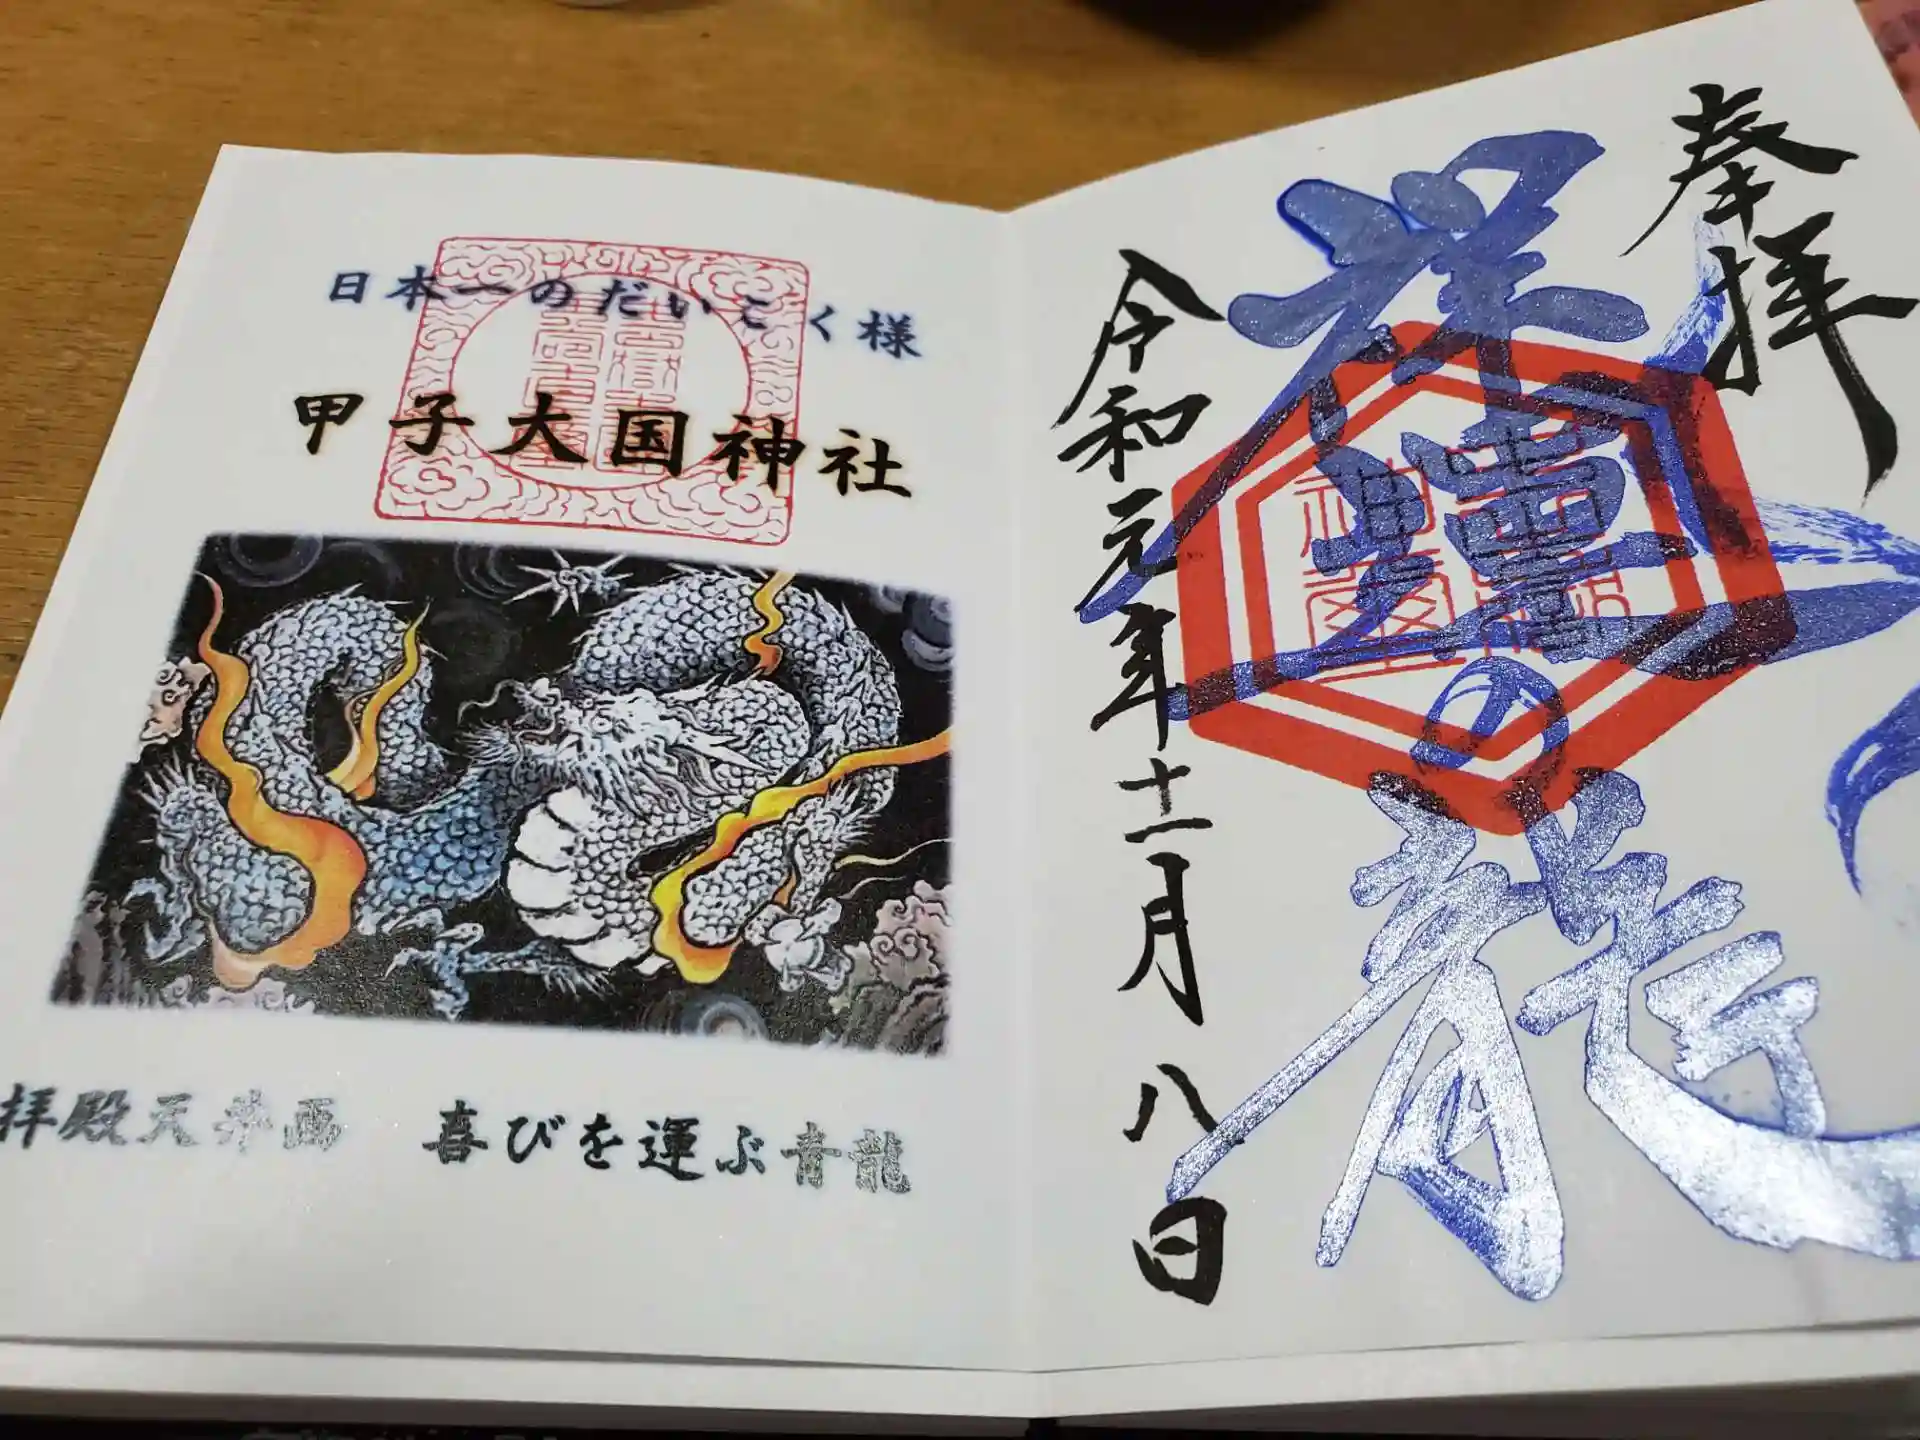 日本一のだいこく様
甲子大国神社
拝殿天井画　喜びを運ぶ青龍
奉拝
の龍
令和元年十一月八日